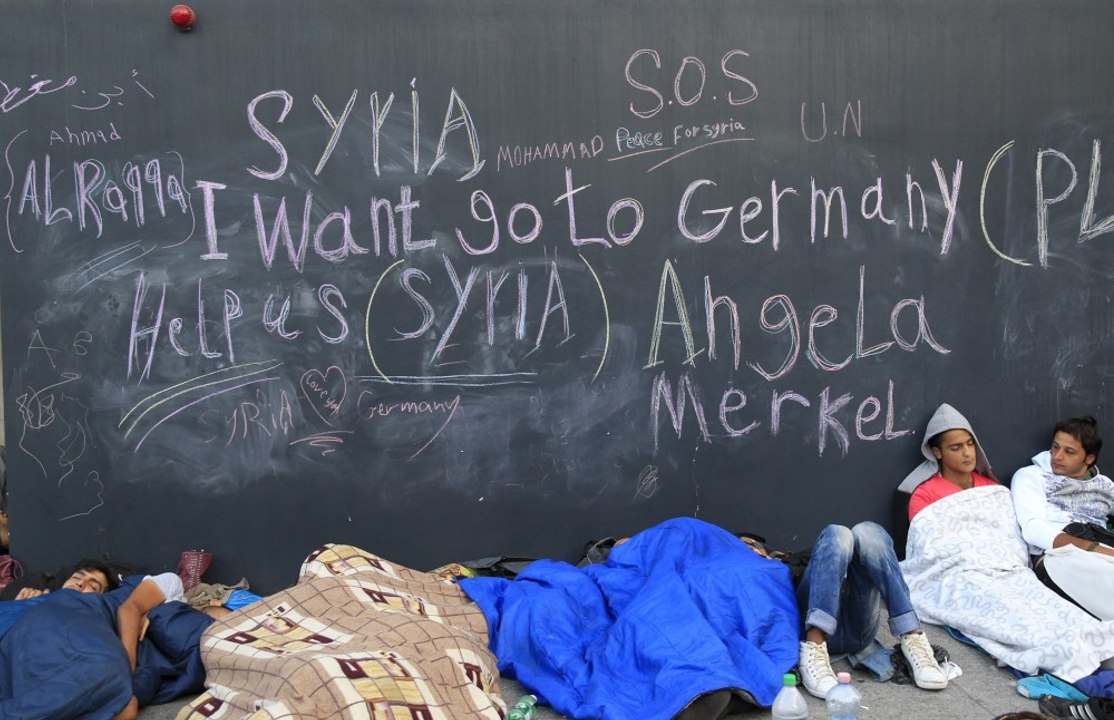 S.O.S
SYRIA
MOHAMMAD
Peace For syria
U.N
Ahmad
(ALRaqqa)
I Want go to Germany (PL
Help us (SYRIA) Angela
Merkel
SYRIA
Love you
Germany